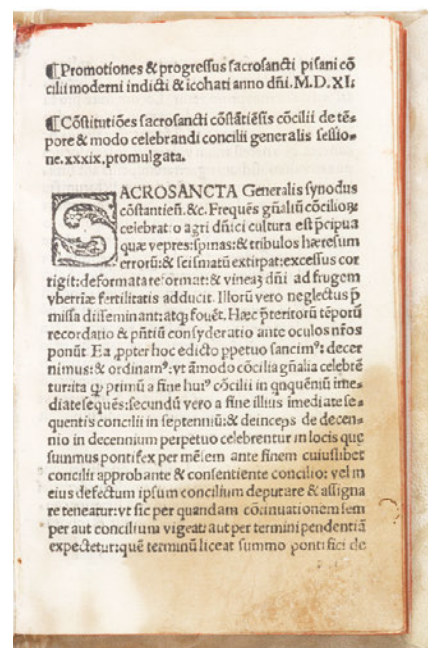 ¶Promotiones & progressus sacrosancti pisani cō
cilii moderni indicti & icohati anno dñi. M.D.XI:
¶Cōstitutiões sacrosancti cōstātiēsis cōcilii de tē⸗
pore & modo celebrandi concilii generalis sessio⸗
ne.xxxix.promulgata.
SACROSANCTA Generalis synodus
cōstantieñ. &c. Frequēs gñaliū cōcilioꝝ
celebratio agri dñici cultura est p̄cipua
quæ vepres:spinas:& tribulos hæresum
errorū:& scismatū extirpat:excessus cor
rigit:deformata reformat:& vineaꝫ dñi ad frugem
vberriæ fertilitatis adducit. Illorū vero neglectus p̄
missa disseminant:atqꝫ fouēt. Hæc p̄teritorū tēporū
recordatio & p̄ñtiū consyderatio ante oculos nr̄os
ponūt Ea ꝓpter hoc edicto ꝑpetuo sancimꝰ: decer
nimus:& ordinamꝰ:vt āmodo cōcilia gñalia celebrē
tur:ita ꝙ primū a fine huiꝰ cōcilii in qnquēniū ime⸗
diate sequēs:secundū vero a fine illius imediate se⸗
quentis concilii in septenniū:& deinceps de decen⸗
nio in decennium perpetuo celebrentur in locis que
summus pontifex per mēsem ante finem cuiuslibet
concilii approbante & consentiente concilio: vel in
eius defectum ipsum concilium deputare & assigna
re teneatur:vt sic per quandam cōtinuationem sem
per aut concilium vigeat:aut per termini pendentiā
expectetur:quē terminū liceat summo pontifici de